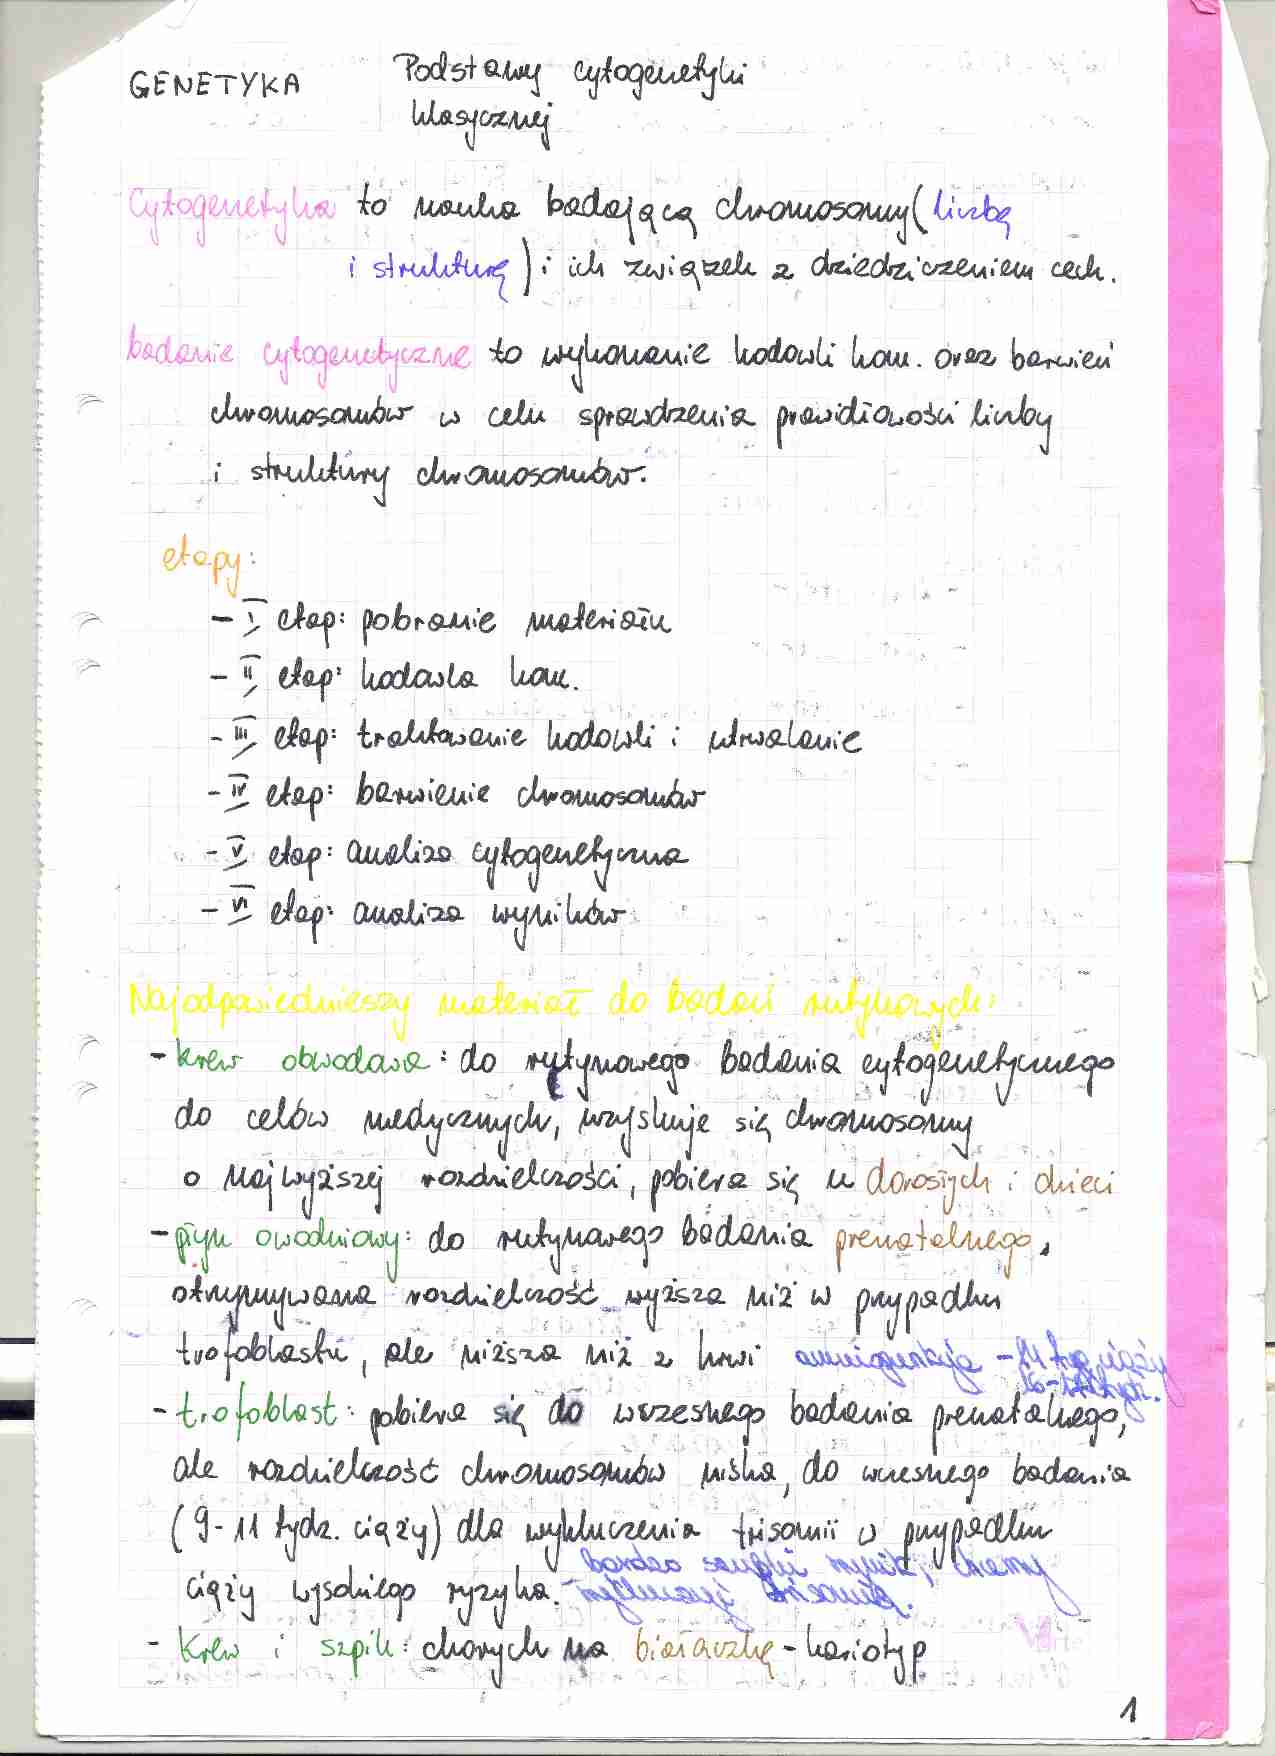 GENETYKA Podstawy cytogenetyki
klasycznej
Cytogenetyka to nauka badającą chromosomy (liczbę
i strukturę) i ich związek z dziedziczeniem cech.
badanie cytogenetyczne to wykonanie hodowli kom. oraz barwień
chromosomów w celu sprawdzenia prawidłowości liczby
i struktury chromosomów.
etapy:
- I etap: pobranie materiału
- II etap: hodowla kom.
- III etap: traktowanie hodowli i utrwalanie
- IV etap: barwienie chromosomów
- V etap: analiza cytogenetyczna
- VI etap: analiza wyników
Najodpowiedniejszy materiał do badań rutynowych:
- krew obwodowa: do rutynowego badania cytogenetycznego
do celów medycznych, uzyskuje się chromosomy
o najwyższej rozdzielczości, pobiera się u dorosłych i dzieci
- płyn owodniowy: do rutynowego badania prenatalnego,
otrzymywana rozdzielczość wyższa niż w przypadku
trofoblastu, ale niższa niż z krwi amniopunkcja - 14 tyg ciąży
- trofoblast: pobiera się do wczesnego badania prenatalnego,
ale rozdzielczość chromosomów niska, do wczesnego badania
(9-11 tydz. ciąży) dla wykluczenia trisomii w przypadku
bardzo szybki wynik,
ciąży wysokiego ryzyka. -
- krew i szpik: chorych na białaczkę - kariotyp
1